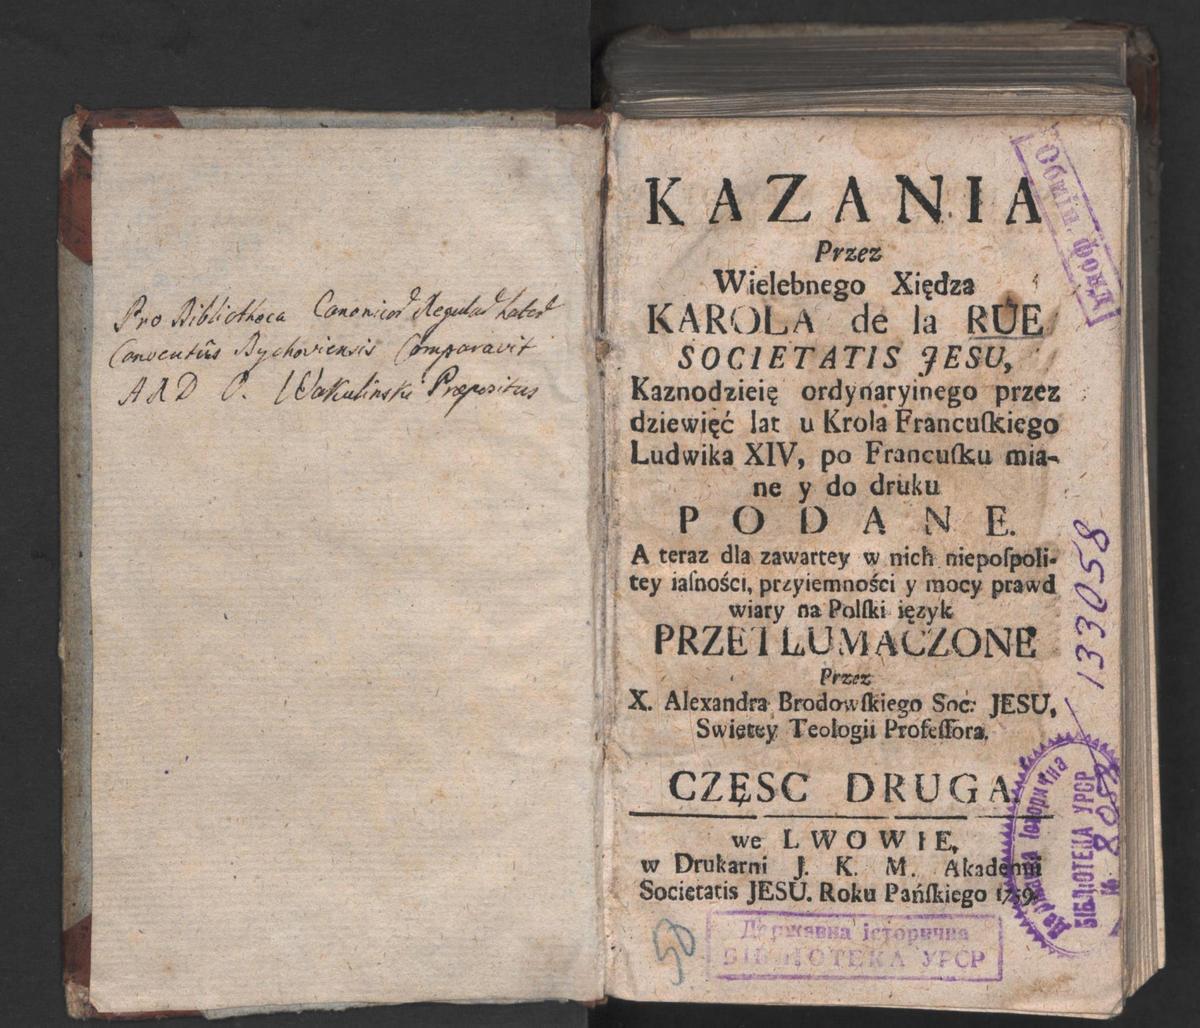 Pro Bibliotheca Canonicor Regular Later
Conventûs Bychoviensis Comparavit
ARD O. Wakulinski Præpositus
KAZANIA
Przez
Wielebnego Xiędza
KAROLA de la RUE
SOCIETATIS JESU,
Kaznodzieię ordynaryinego przez
dziewięć lat u Krola Francuſkiego
Ludwika XIV, po Francuſku mia-
ne y do druku
PODANE.
A teraz dla zawartey w nich niepoſpoli-
tey iaſności, przyiemności y mocy prawd
wiary na Polſki ięzyk
PRZETLUMACZONE
Przez
X. Alexandra Brodowſkiego Soc: JESU,
Swiętey Teologii Profeſſora.
CZĘSC DRUGA.
we LWOWIE,
w Drukarni J. K. M. Akademii
Societatis JESU. Roku Pańſkiego 1759.
133058
Державна історична
БІБЛІОТЕКА УРСР
№ 8058
50
Державна історична
БІБЛІОТЕКА УРСР